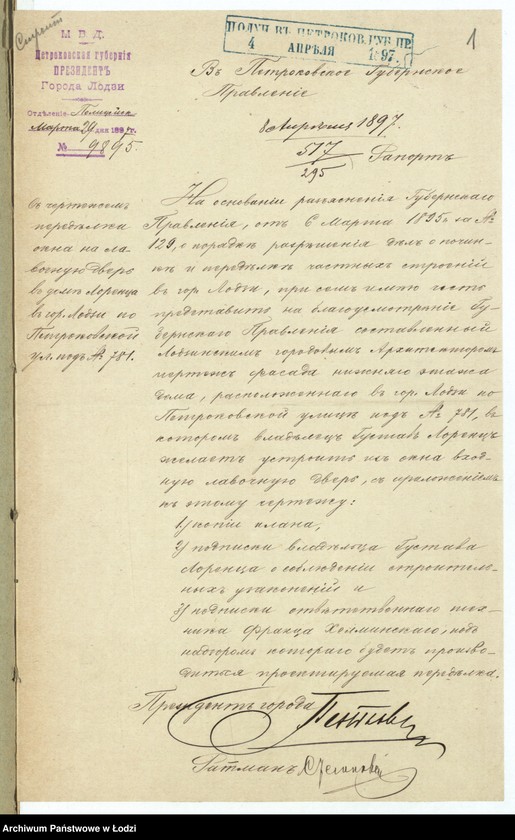 1
ПОЛУЧ. ВЪ ПЕТРОКОВ. ГУБ. ПР.
4 АПРѢЛЯ 1897.
М. В. Д.
Петроковская губернія
ПРЕЗИДЕНТЪ
Города Лодзи
Отдѣленіе
Марта 29 дня 1897 г.
№ 9895.
Въ Петроковское Губернское
Правленіе
8 Апрѣля 1897.
517
295
Рапортъ
Съ чертежомъ
передѣлки
окна на ла-
вочную дверь
въ домѣ Лоренца
въ гор. Лодзи по
Петроковской
ул. подъ № 781.
На основаніи разъясненія Губернскаго
Правленія, отъ 6 Марта 1895 г. за №
129, о порядкѣ разрѣшенія дѣлъ о почин-
кѣ и передѣлкѣ частныхъ строеній
въ гор. Лодзи, при семъ имѣю честь
представить на благоусмотрѣніе Гу-
бернскаго Правленія составленный
Лодзинскимъ городовымъ Архитекторомъ
чертежъ фасада нижняго этажа
дома, расположеннаго въ гор. Лодзи по
Петроковской улицѣ подъ № 781, въ
которомъ владѣлецъ Густавъ Лоренцъ
желаетъ устроить изъ окна вход-
ную лавочную дверь, съ приложеніемъ
къ этому чертежу:
1) копіи плана,
2) подписки владѣльца Густава
Лоренца о соблюденіи строитель-
ныхъ узаконеній и
3) подписки отвѣтственнаго тех-
ника Франца Хелминскаго, подъ
надзоромъ котораго будетъ произво-
диться проектируемая передѣлка.
Президентъ города
Ратманъ
Archiwum Państwowe w Łodzi